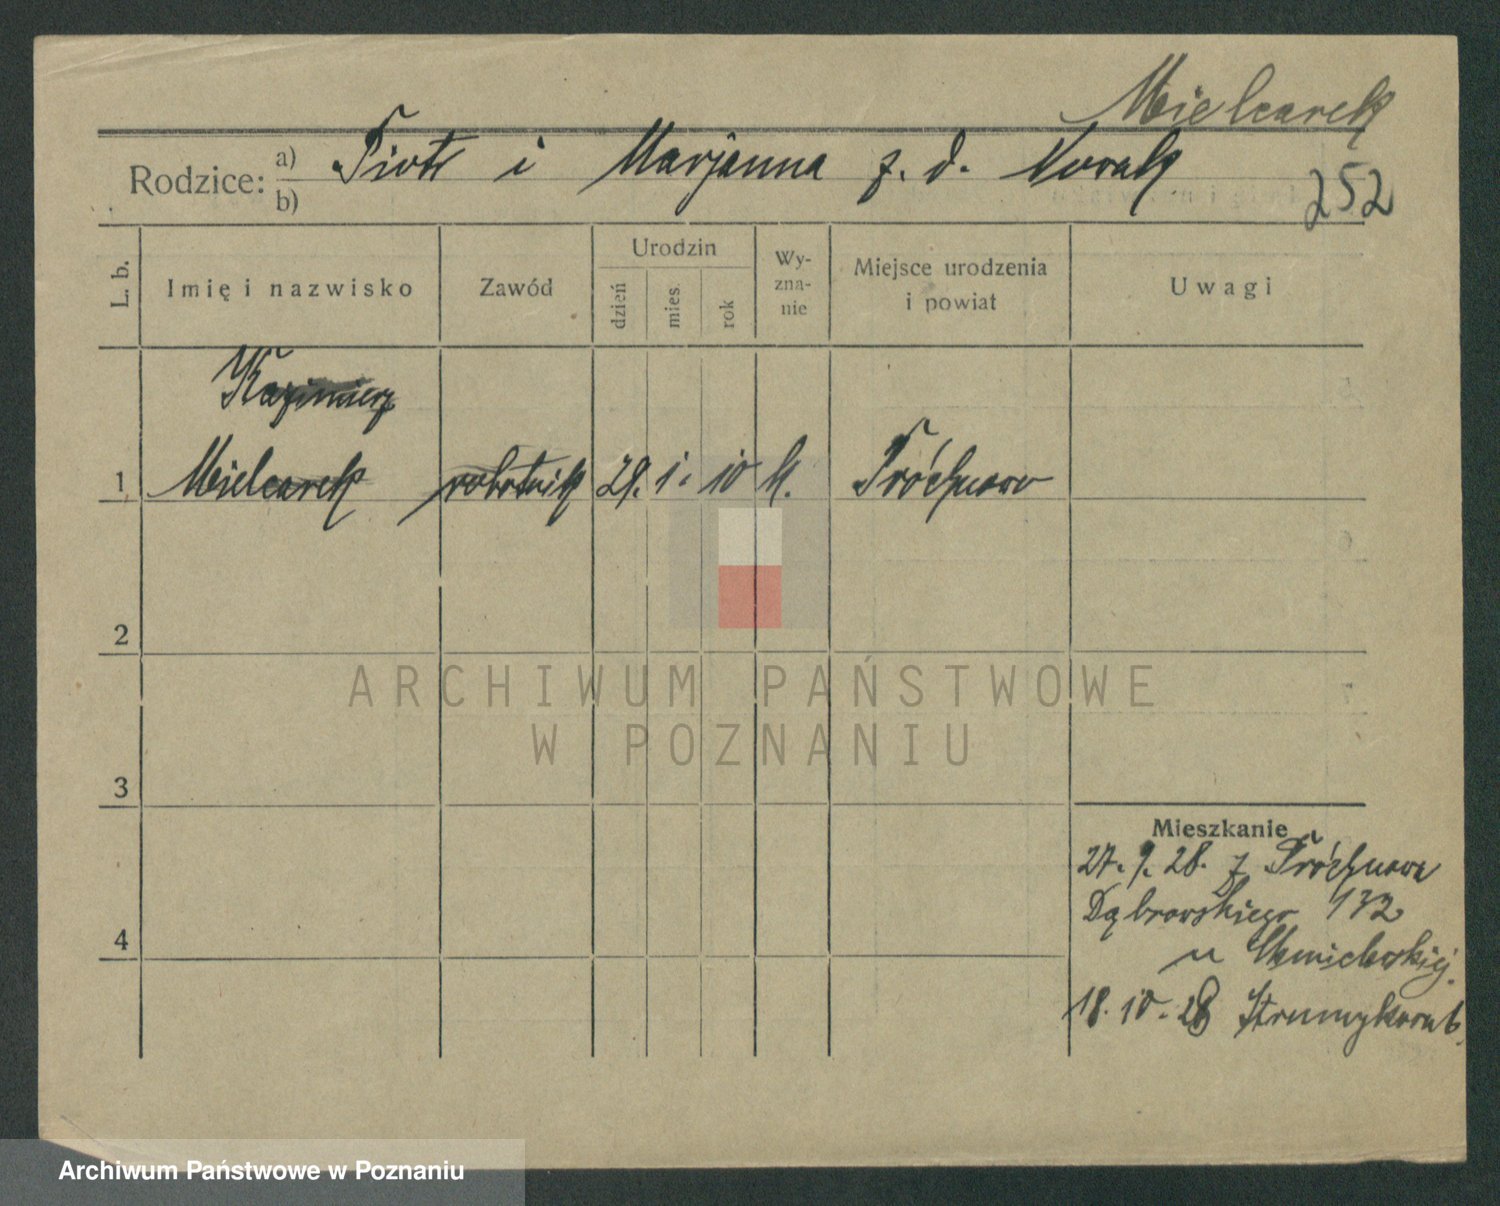 Mielcarek
Rodzice: a) Piotr i Marjanna z. d. Nowak
b)
252
L. b.
Imię i nazwisko
Zawód
Urodzin
dzień
mies.
rok
Wy-
zna-
nie
Miejsce urodzenia
i powiat
Uwagi
Kazimierz
1 Mielcarek robotnik 29. 1. 10 k.
2
3
4
Mieszkanie
27. 9. 28. z
Dąbrowskiego 132
u
18. 10. 28 Strumykowa 6.
ARCHIWUM PAŃSTWOWE
W POZNANIU
Archiwum Państwowe w Poznaniu